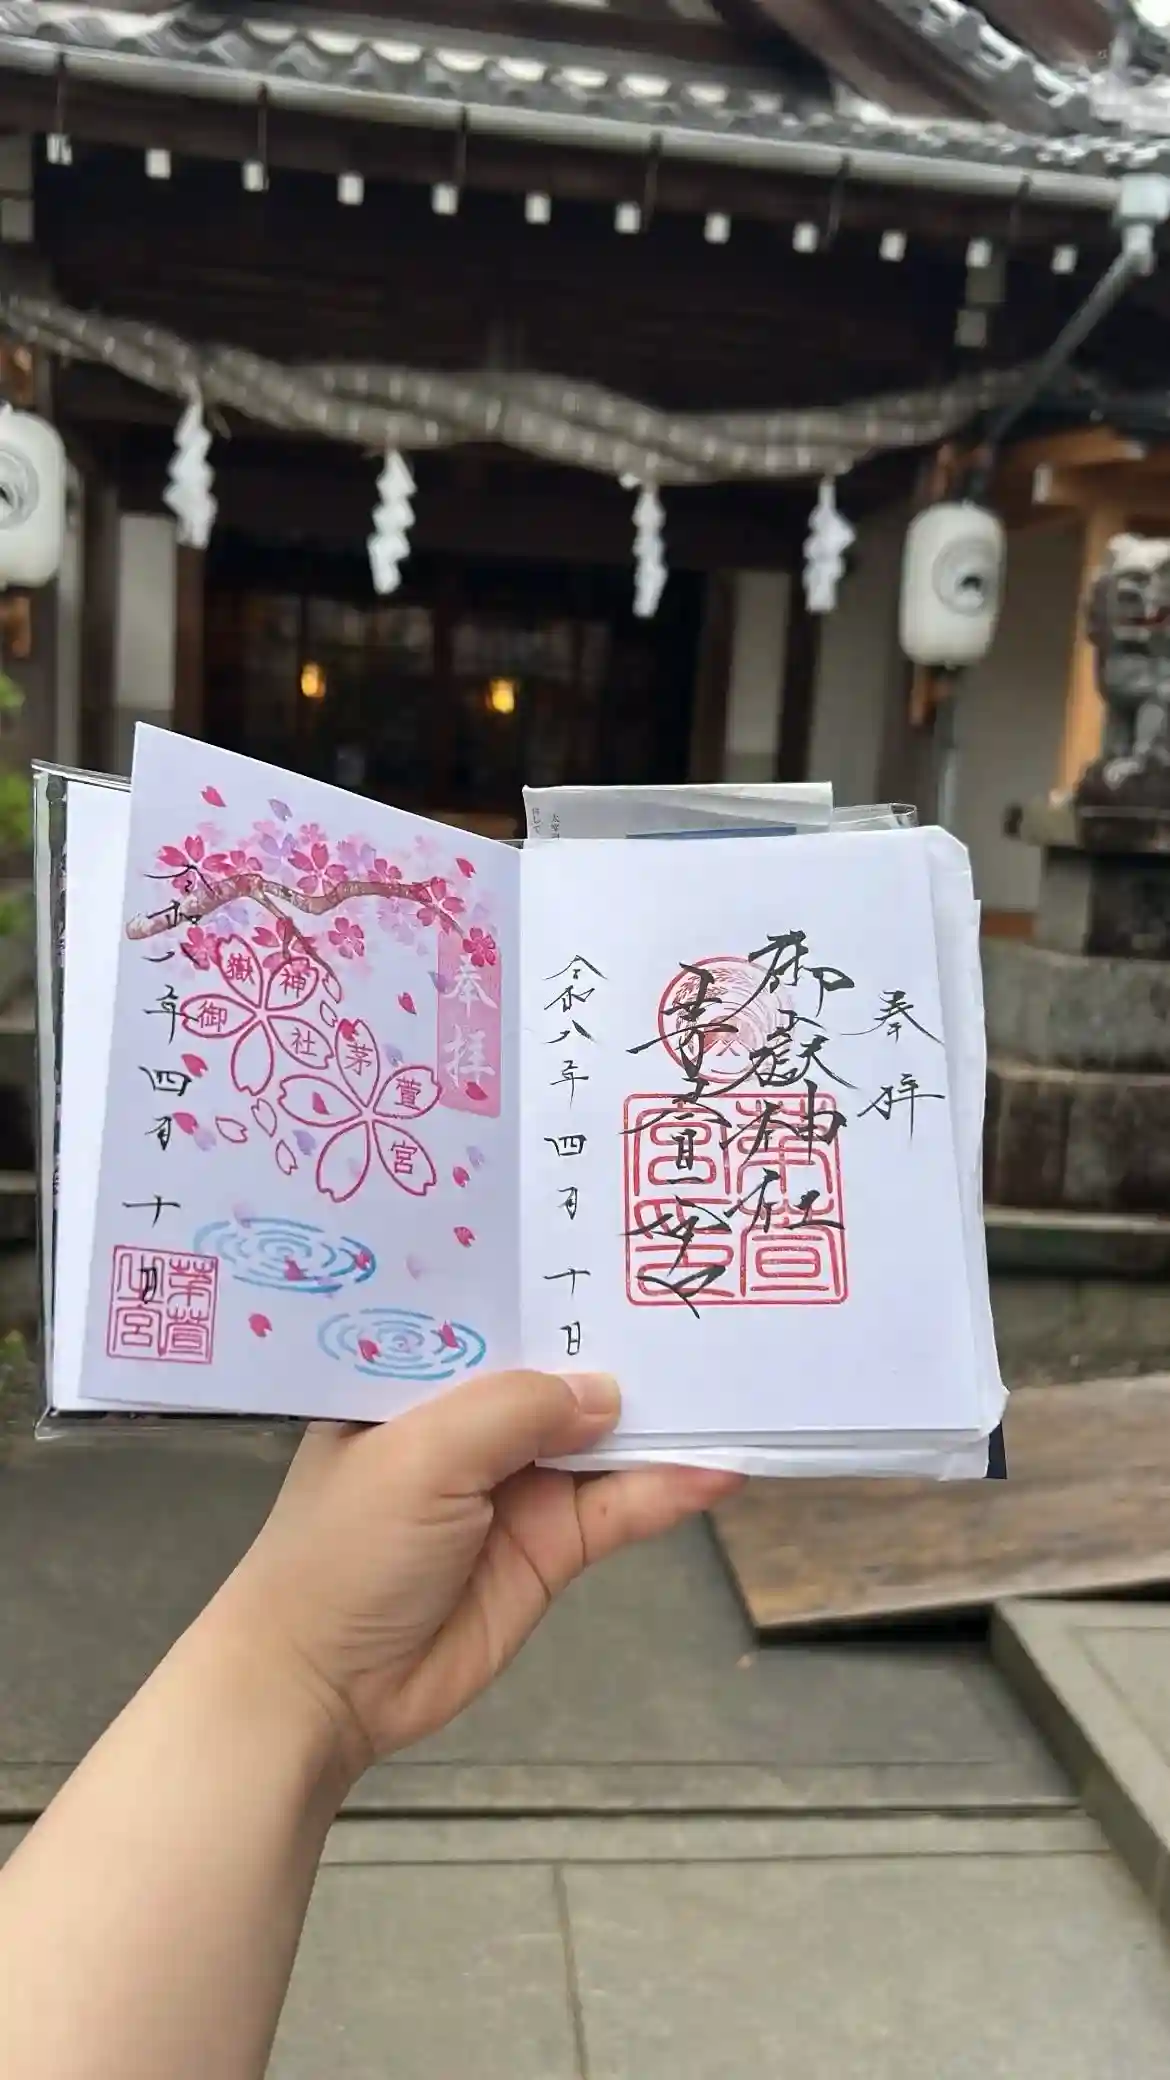 奉拝
御嶽神社
茅萱宮
茅萱宮印
令和八年四月十日
奉拝
御嶽神社
茅萱宮
令和八年四月十日
茅萱之宮